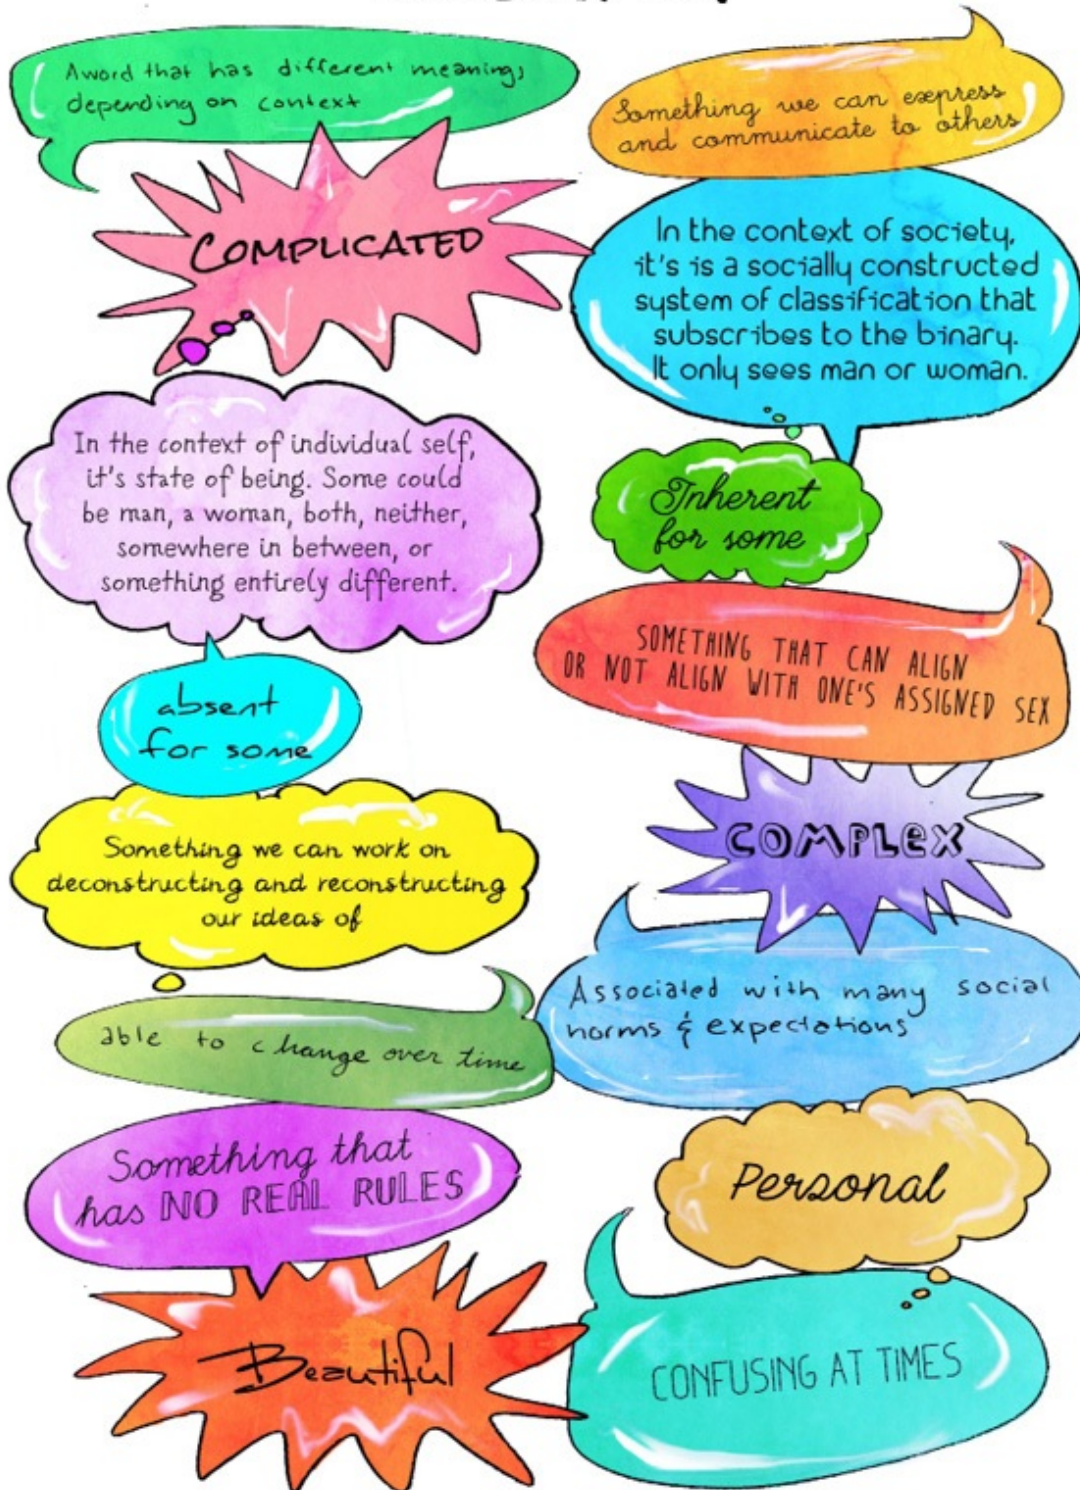 A word that has different meanings
depending on context
Something we can express
and communicate to others
COMPLICATED
In the context of society,
it's is a socially constructed
system of classification that
subscribes to the binary.
It only sees man or woman.
In the context of individual self,
it's state of being. Some could
be man, a woman, both, neither,
somewhere in between, or
something entirely different.
Inherent
for some
SOMETHING THAT CAN ALIGN
OR NOT ALIGN WITH ONE'S ASSIGNED SEX
absent
for some
COMPLEX
Something we can work on
deconstructing and reconstructing
our ideas of
Associated with many social
norms & expectations
able to change over time
Something that
has NO REAL RULES
Personal
Beautiful
CONFUSING AT TIMES